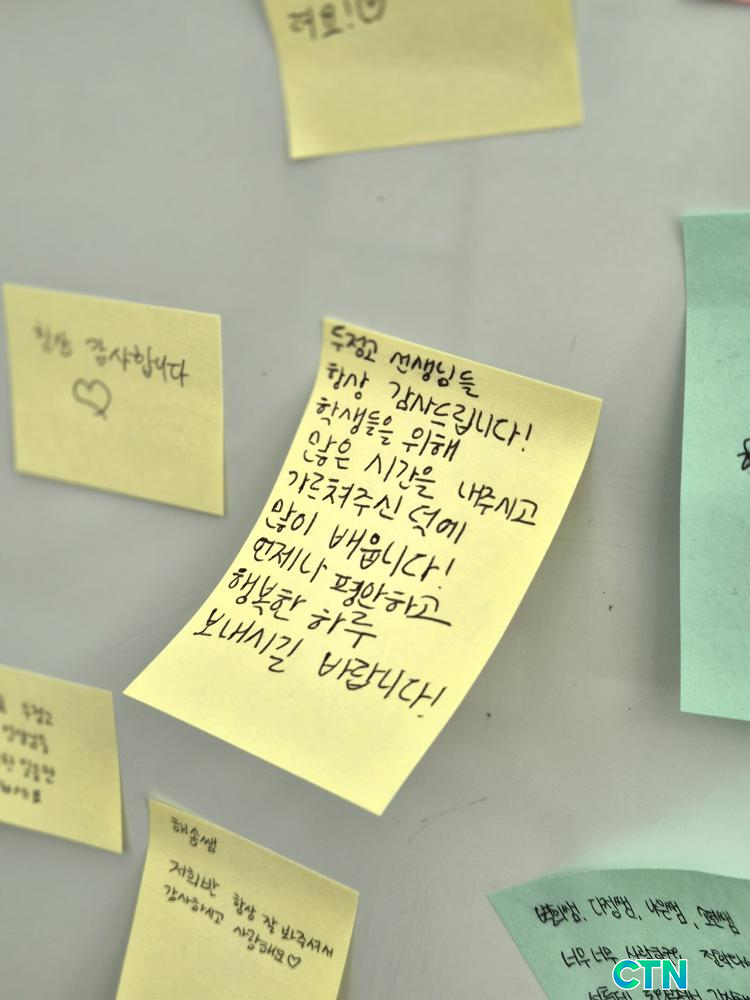 려요!
항상 감사합니다
두정고 선생님들
항상 감사드립니다!
학생들을 위해
많은 시간을 내주시고
가르쳐주신 덧에
많이 배웁니다!
언제나 평안하고
행복한 하루
보내시길 바랍니다!
두정고
해송쌤
저희반 항상 잘 봐주셔서
감사하고 사랑해요♡
다정쌤, 나은쌤,
너무너무
CTN